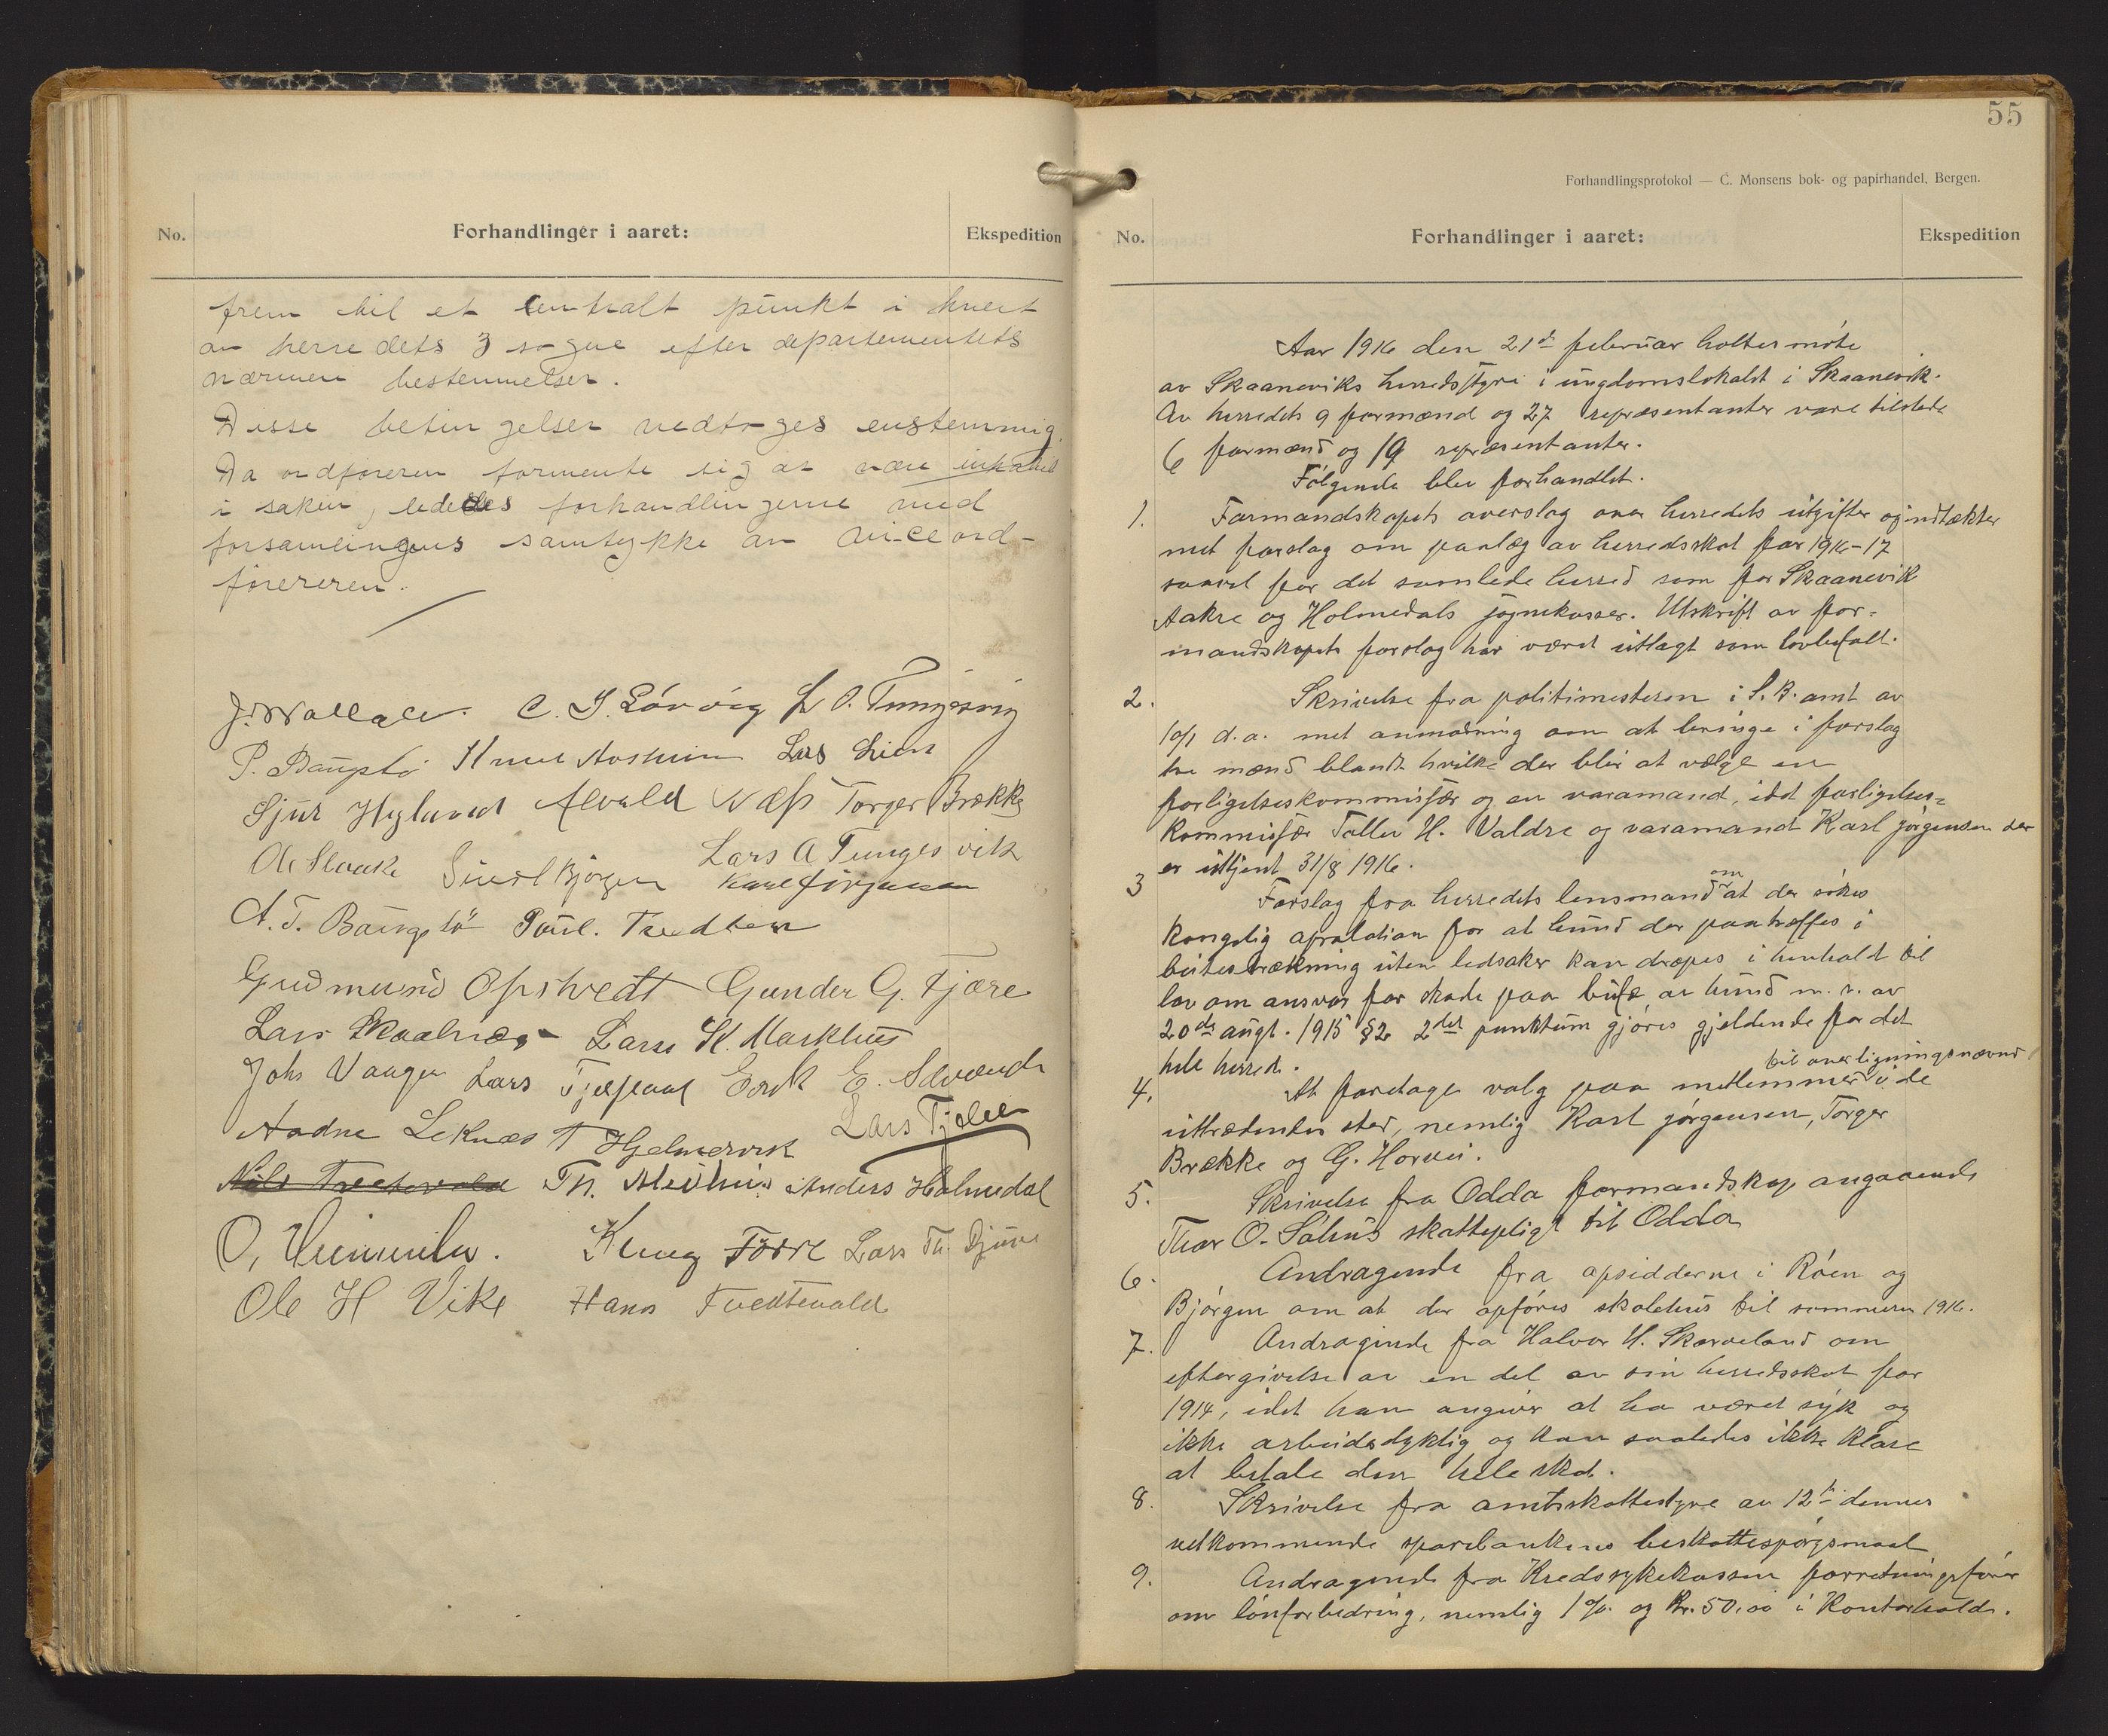 No.
Forhandlinger i aaret:
Ekspedition
frem til et centralt punkt i hvert
av herredets 3 sogne efter departementets
nærmere bestemmelser.
Disse betingelser vedtoges enstemmig.
Da ordføreren formente sig at være inhabil
i saken, lededes forhandlingerne med
forsamlingens samtykke av viceord-
føreren.
J. Wallace. C. J. Lönvig L O. Tungesvig
P. Baugstö Knut Lars Lien
Sjur Höyland Alvald Næss Torger Brække
Ole Haake Sivert Bjørgen Lars A Tungesvik
Karl Jørgensen
A. T. Baugstö Poul. Tredten
Gudmund Opstvedt Gunder G. Fjære
Lars Skaalnæs Lars K. Markhus
Johs Vaage Lars Erik E.
Aadne Leknæs T Hjelmervik Lars Fjæle
Nils Tveitevald Th. Anders Holmedal
O, Knut Førre Lars Th. Djuve
Ole H Vike Hans Tveitevald
55
Forhandlingsprotokol — C. Monsens bok- og papirhandel, Bergen.
No.
Forhandlinger i aaret:
Ekspedition
Aar 1916 den 21de februar holtes møte
av Skaaneviks herredsstyre i ungdomslokalet i Skaanevik.
Av herredets 9 formænd og 27 repræsentanter vare tilstede
6 formænd og 19 repræsentanter.
Følgende blev forhandlet.
1. Formandskapets overslag over herredets utgifter og indtækter
met forslag om paalæg av herredsskat for 1916-17
saavel for det samlede herred som for Skaanevik
Aakre og Holmedals sognekasser. Utskrift av for-
mandskapets forslag har været utlagt som lovbefalt.
2. Skrivelse fra politimesteren i S.B. amt av
10/1 d.a. met anmodning om at bringe i forslag
tre mænd blandt hvilke der blir at vælge en
forligelseskommissær og en varamand, idet forligelses-
kommissær Tollev H. Valdre og varamand Karl Jørgensen der
er uttjent 31/8 1916.
3 Forslag fra herredets lensmand om at der søkes
kongelig aprobation for at hund der paatræffes i
beitestrækning uten ledsaker kan dræpes i henholdt til
lov om ansvar for skade paa bufæ av hund m. v. av
20de augt. 1915 § 2 2det punktum gjøres gjeldende for det
hele herred.
4. At foretage valg paa metlemmer til overligningsnævnd i de
uttrædendes sted, nemlig Karl Jørgensen, Torger
Brække og G. Horvei.
5. Skrivelse fra Odda formandskap angaaende
Thor O. Sølhus skattepligt til Odda
6. Andragende fra opsidderne i Røen og
Bjørgen om at der opføres skolehus til sommeren 1916.
7. Andragende fra Halvor H. Skarveland om
eftergivelse av en del av sin herredsskat for
1914, idet han angiver at ha været syk og
ikke arbeidsdyktig og kan saaledes ikke klare
at betale den hele skat.
8. Skrivelse fra amtsskattestyre av 12te dennes
vedkommende sparebankens beskattespørgsmaal
9. Andragende fra Kredssykekassen forretningsfører
om lønforbedring, nemlig 1 % og Kr. 50.00 i Kontorhold.